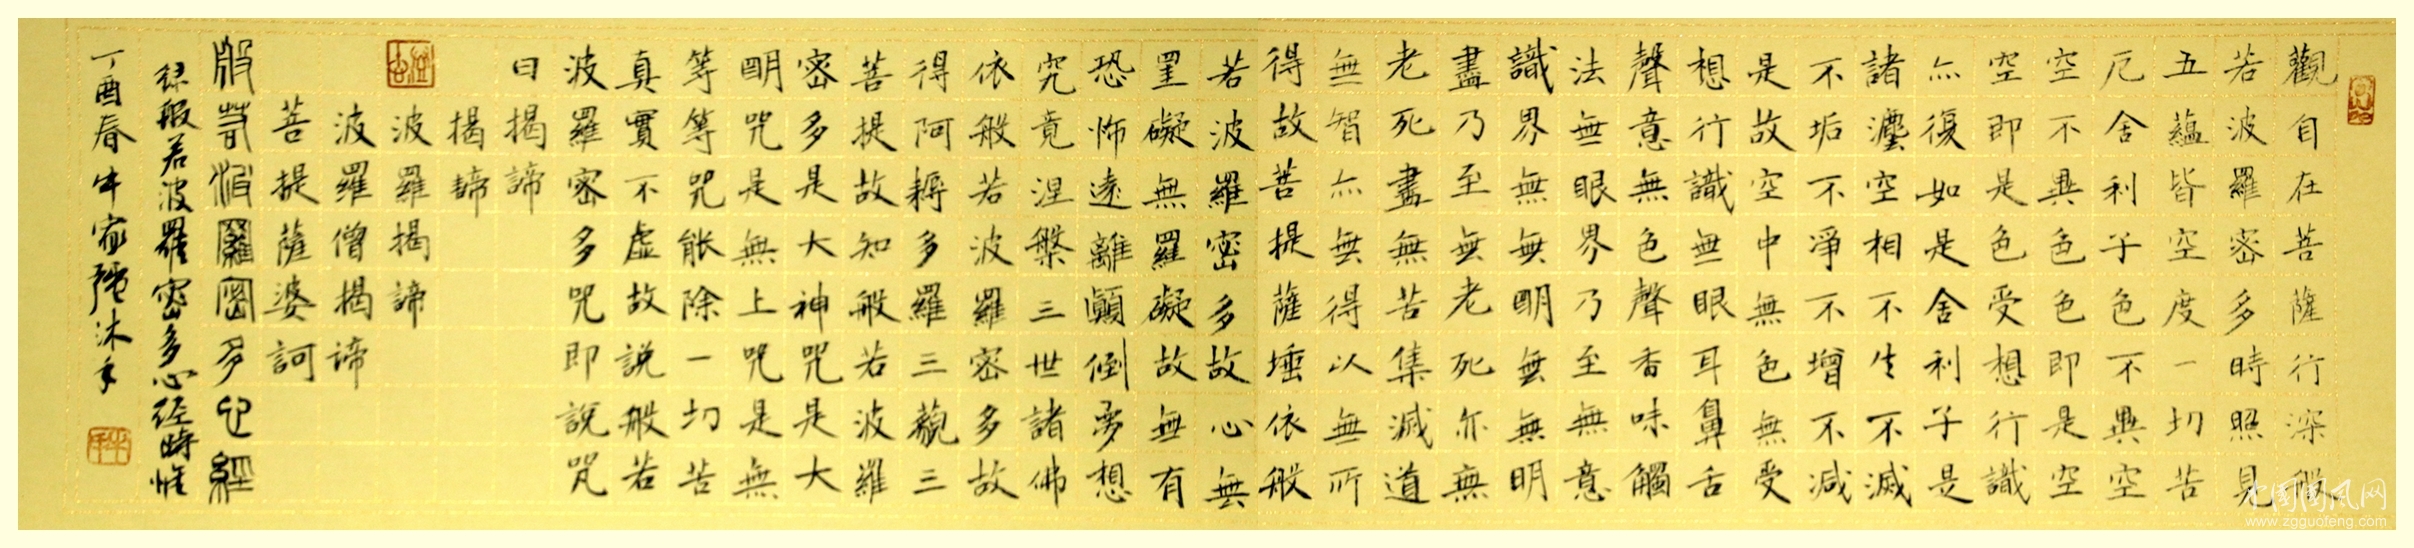 觀自在菩薩行深般
若波羅密多時照見
五蘊皆空度一切苦
厄舍利子色不異空
空不異色色即是空
空即是色受想行識
亦復如是舍利子是
諸灋空相不生不滅
不垢不淨不增不減
是故空中無色無受
想行識無眼耳鼻舌
聲意無色聲香味觸
法無眼界乃至無意
識界無無明無無明
盡乃至無老死亦無
老死盡無苦集滅道
無智亦無得以無所
得故菩提薩埵依般
若波羅密多故心無
罣礙無羅礙故無有
恐怖遠離顛倒夢想
究竟涅槃三世諸佛
依般若波羅密多故
得阿耨多羅三藐三
菩提故知般若波羅
密多是大神咒是大
明咒是無上咒是無
等等咒能除一切苦
真實不虛故說般若
波羅密多咒即說咒
曰揭諦
揭諦
波羅揭諦
波羅僧揭諦
菩提薩婆訶
般若波羅密多心經
録般若波羅密多心经時惟
丁酉春牛家強沐手
中国国风网
www.zgguofeng.com